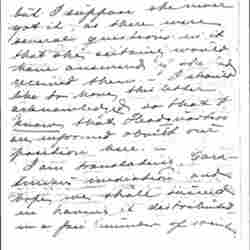 but I suppose she never
got it, as there were
several questions in it
that she certainly would
have answered if she had
received them. – I should
like to have this letter
acknowledged, so that I
know that Headquarters
are informed about our
position here. –
I am translating
mediation and
hope we shall succeed
in having it distributed
in a fair number of